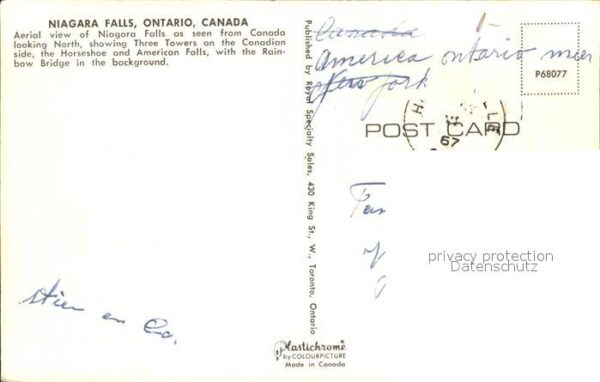 NIAGARA FALLS, ONTARIO, CANADA
Aerial view of Niagara Falls as seen from Canada
looking North, showing Three Towers on the Canadian
side, the Horseshoe and American Falls, with the Rain-
bow Bridge in the background.
Published by Royal Specialty Sales, 430 King St., W., Toronto, Ontario
Canada
America ontario meer
New York
P68077
POST CARD
67
privacy protection
Datenschutz
stien en Co.
Plastichrome
by COLOURPICTURE
Made in Canada